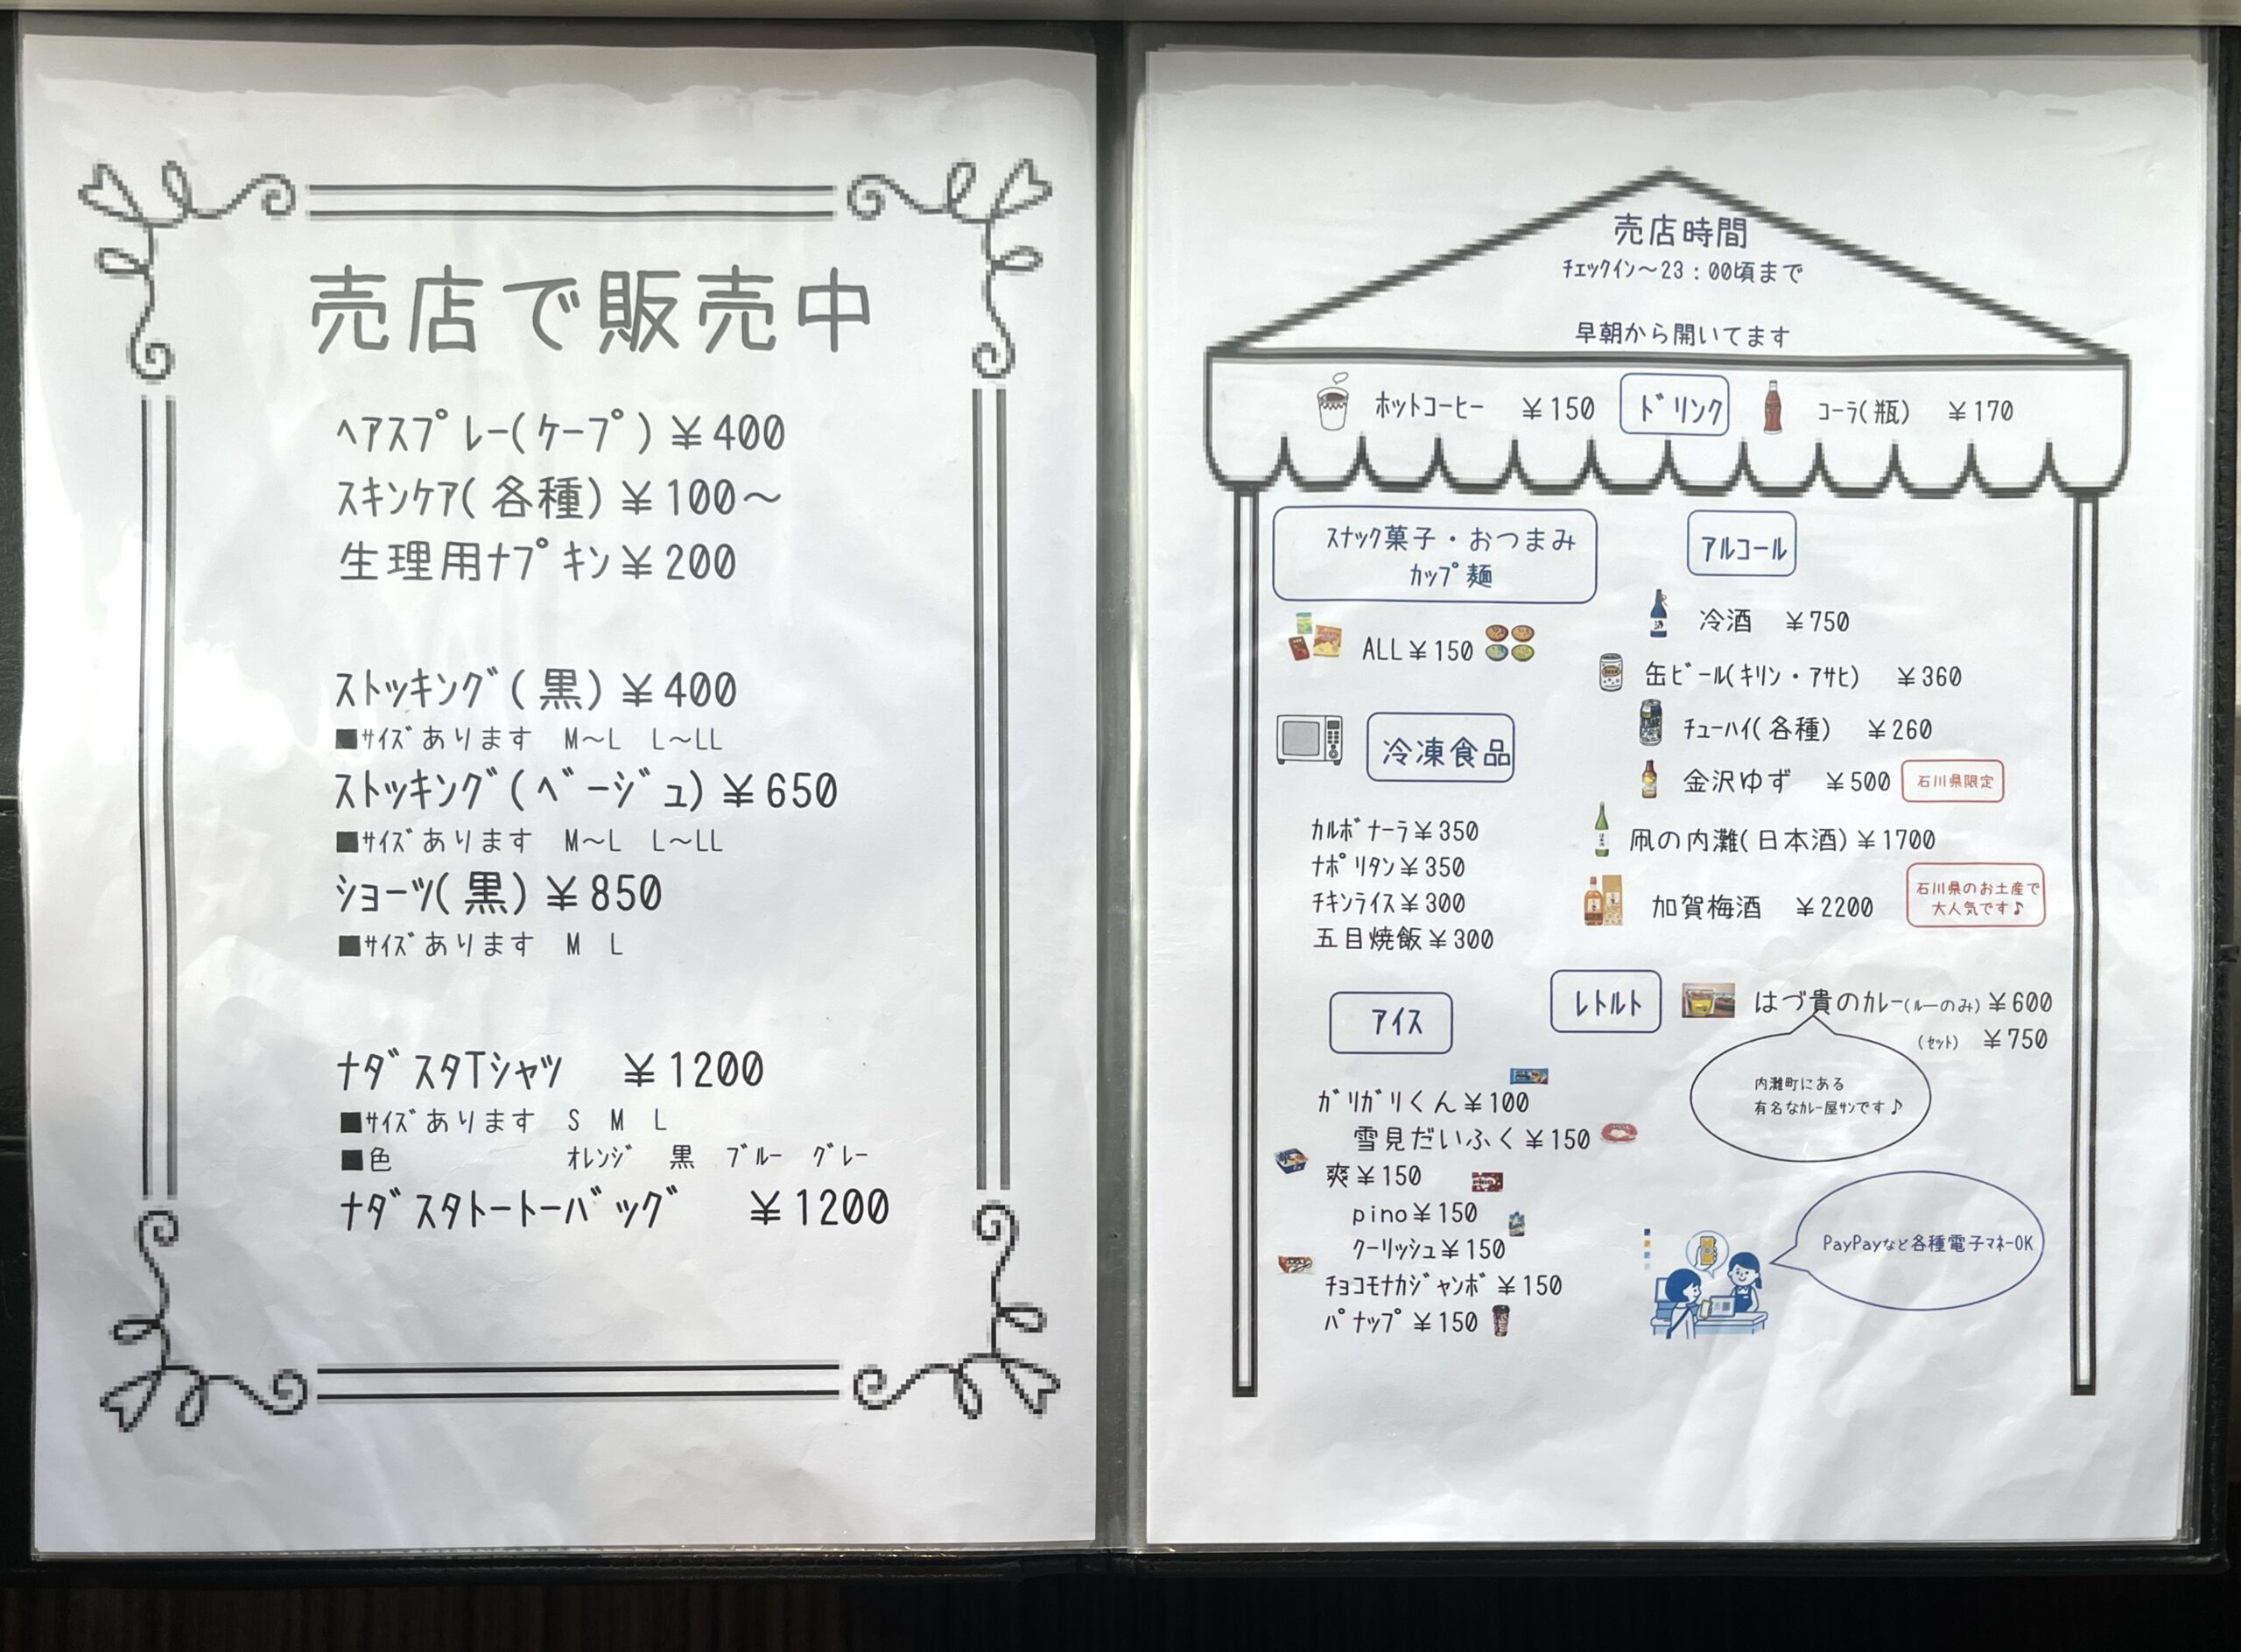 売店で販売中
ヘアスプレー(ケープ)￥400
スキンケア(各種)￥100～
生理用ナプキン￥200
ストッキング(黒)￥400
■サイズあります　M～L　L～LL
ストッキング(ベージュ)￥650
■サイズあります　M～L　L～LL
ショーツ(黒)￥850
■サイズあります　M　L
ナダスタTシャツ　￥1200
■サイズあります　S　M　L
■色　オレンジ　黒　ブルー　グレー
ナダスタトートーバッグ　￥1200
売店時間
チェックイン～23：00頃まで
早朝から開いてます
ホットコーヒー　￥150
ドリンク
コーラ(瓶)　￥170
スナック菓子・おつまみ
カップ麺
ALL￥150
冷凍食品
カルボナーラ￥350
ナポリタン￥350
チキンライス￥300
五目焼飯￥300
アイス
ガリガリくん￥100
雪見だいふく￥150
爽￥150
pino￥150
クーリッシュ￥150
チョコモナカジャンボ￥150
パナップ￥150
アルコール
冷酒　￥750
缶ビール(キリン・アサヒ)　￥360
チューハイ(各種)　￥260
金沢ゆず　￥500
石川県限定
凧の内灘(日本酒)￥1700
加賀梅酒　￥2200
石川県のお土産で
大人気です♪
レトルト
はづ貴のカレー(ルーのみ)￥600
(セット)　￥750
内灘町にある
有名なカレー屋サンです♪
PayPayなど各種電子マネーOK